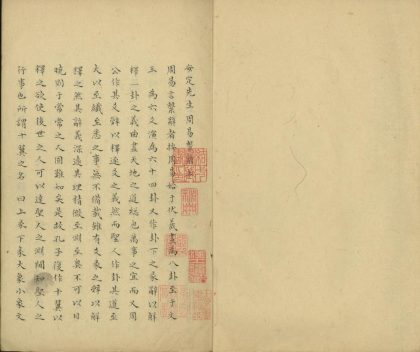 安定先生周易繫辭上
周易言繫辭者按周易始于伏羲畫為八卦至于文
王為六爻演為六十四卦又作卦下之彖辭以解
釋二卦之義由盡天地之道極也萬事之宜而又周
公作其爻辭以釋逐爻之義然而聖人作卦其道至
大以至纖至悉之事無不備載雖有爻彖之辭以解
釋之然其辭義深遠其理精微至淵至奧不可以曰
曉則于常常之人固難知矣是故孔子復作十翼以
釋之欲使後世之人可以達聖人之淵閫知聖人之
行事也所謂十翼之名曰上彖下彖大象小象文